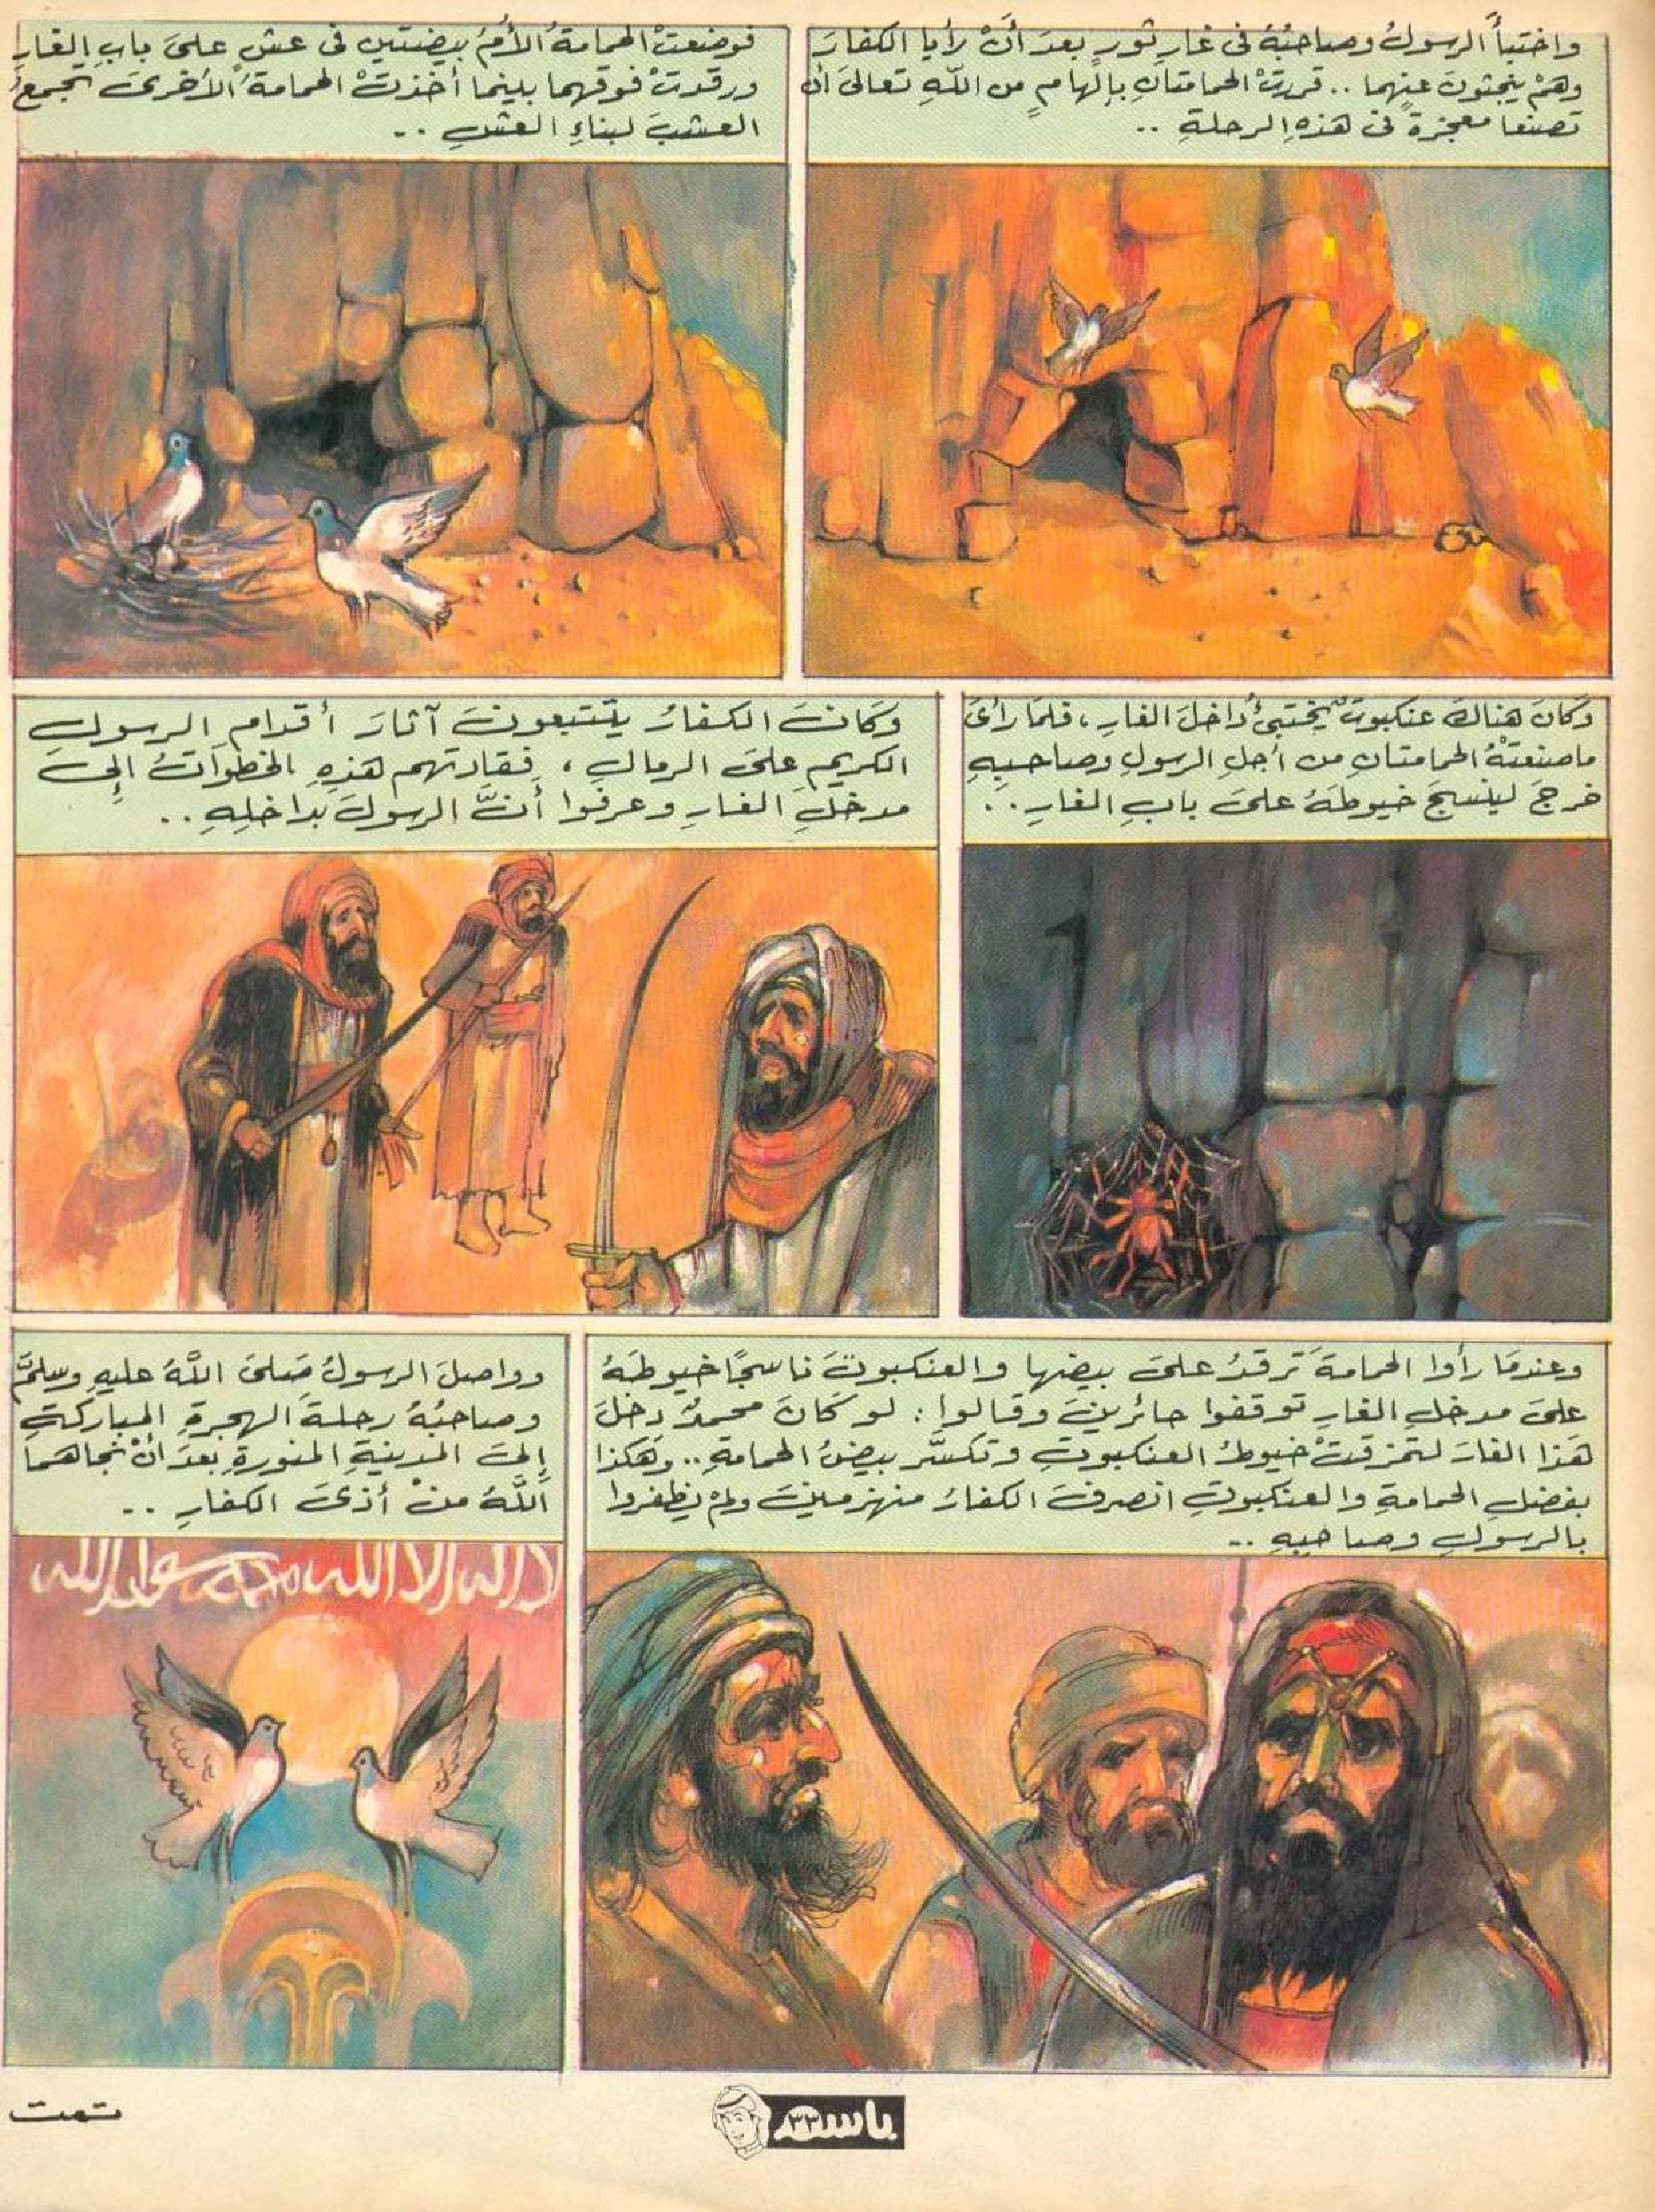 واختبأَ الرسولُ وصاحبُهُ فى غارِ ثورٍ بعدَ أنْ رأيا الكفارَ
وهمْ يبحثونَ عنهما .. قررتْ الحمامتانِ بإلهامٍ من اللّهِ تعالىَ أن
تصنعا معجزةً فى هذهِ الرحلةِ ..
فوضعتْ الحمامةُ الأُمُ بيضتين فى عشٍ علىَ بابِ الغارِ
ورقدتْ فوقهما بينما أخذتْ الحمامةُ الأخرىَ تجمعُ
العشبَ لبناءِ العشِ ..
وكانَ هناكَ عنكبوتٌ يختبئُ داخلَ الغارِ ، فلما رأىَ
ما صنعتْهُ الحمامتانِ من أجلِ الرسولِ وصاحبِهِ
خرجَ لينسجَ خيوطَهُ علىَ بابِ الغارِ ..
وكانَ الكفارُ يتتبعونَ آثارَ أقدامِ الرسولِ
الكريمِ علىَ الرمالِ ، فقادتهم هذهِ الخطواتُ إلىَ
مدخلِ الغارِ وعرفوا أنَّ الرسولَ بداخلِهِ ..
وعندما رأوا الحمامةَ ترقدُ علىَ بيضها والعنكبوتَ ناسجًا خيوطَهُ
علىَ مدخلِ الغارِ توقفوا حائرينَ وقالوا : لو كانَ محمدٌ دخلَ
هذا الغارَ لتمزقتْ خيوطُ العنكبوتِ وتكسَّر بيضُ الحمامةِ .. وهكذا
بفضلِ الحمامةِ والعنكبوتِ انصرفَ الكفارُ منهزمينَ ولمْ يظفروا
بالرسولِ وصاحبِهِ ..
وواصلَ الرسولُ صَلىَ اللّهُ عليهِ وسلمَّ
وصاحبُهُ رحلةَ الهجرةِ المباركةِ
إلىَ المدينةِ المنورةِ بعدَ أنْ نجاهما
اللّهُ منْ أذىَ الكفارِ ..
لا إله إلا الله محمد رسول الله
تمت
باسم ٣٣